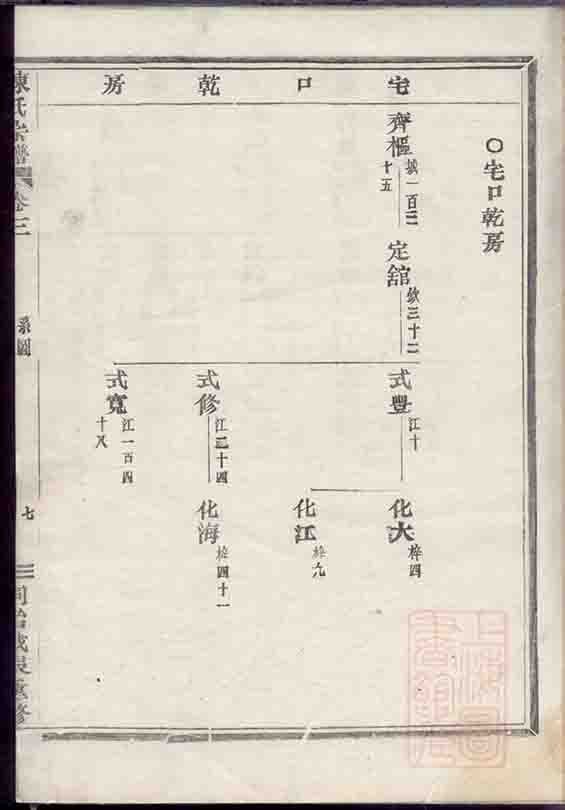 〇宅口乾房
宅口乾房
齊樞
城一百三十五
定舘
欽三十二
式豐
江十
式修
江二十四
式寬
江一百四十八
化大
梓四
化江
梓九
化海
梓四十一
陳氏宗譜
卷三
系圖
七
同治戊辰重修
上海圖書館藏